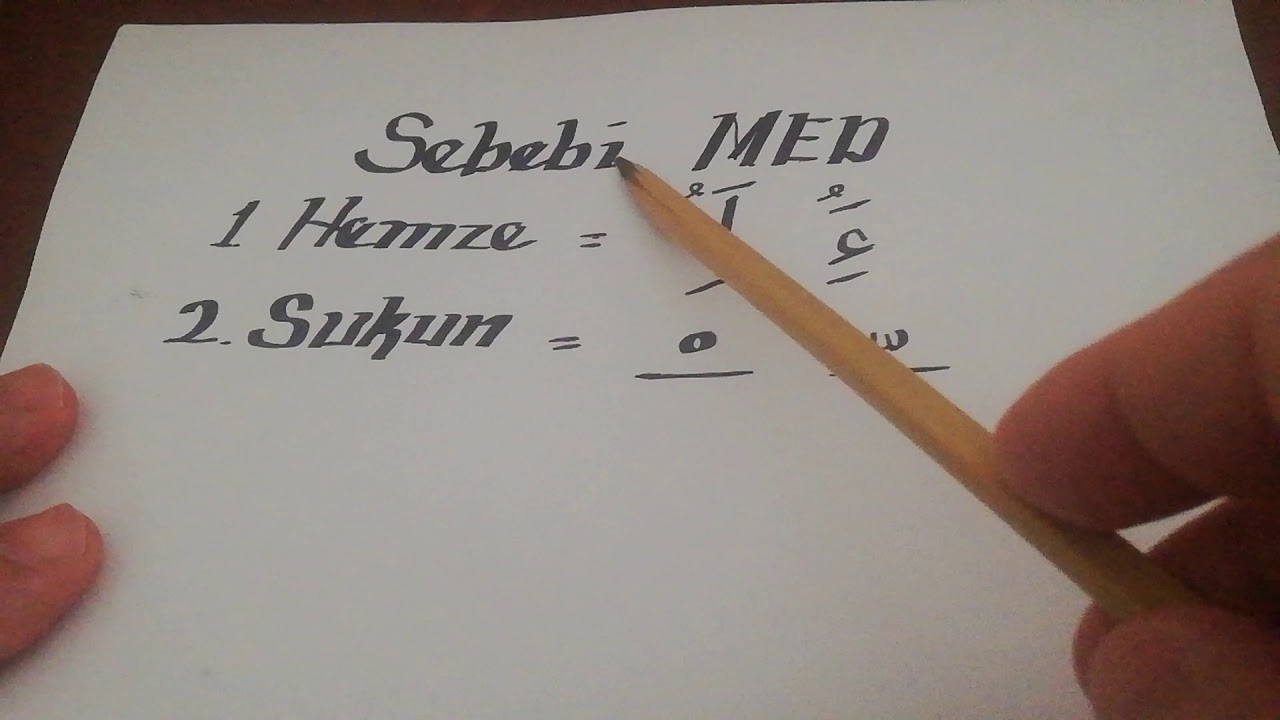 Sebebi MED
1 Hemze = ا ء
2. Sukun = ο س